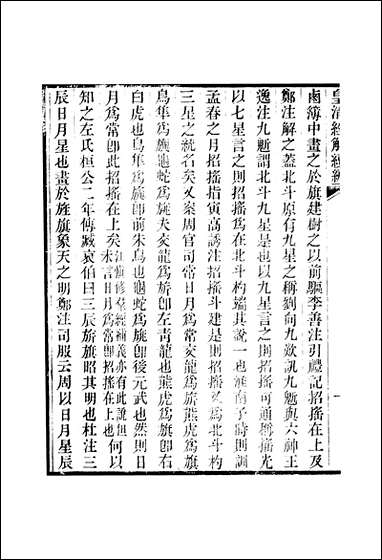 皇清經解續編
一
鹵簿中畫之於旗建樹之以前驅李善注引禮記招搖在上及
鄭注解之蓋北斗原有九星之稱劉向九歎訊九鬿與六神王
逸注九鬿謂北斗九星是也以九星言之則招搖可通稱搖光
以七星言之則招搖爲在北斗杓端其說一也淮南子時則訓
孟春之月招搖指寅高誘注招搖斗建是則招搖又爲北斗杓
三星之統名矣又案周官司常日月爲常交龍爲旂熊虎爲旗
鳥隼爲旟龜蛇爲旐夫交龍爲旂卽左青龍也熊虎爲旗卽右
白虎也鳥隼爲旟卽前朱鳥也龜蛇爲旐卽後元武也然則日
月爲常卽此招搖在上矣江愼修羣經補義亦有此說但未言日月爲常卽招搖在上也何以
知之左氏桓公二年傳臧哀伯曰三辰旂旗昭其明也杜注三
辰日月星也畫於旌旗象天之明鄭注司服云周以日月星辰